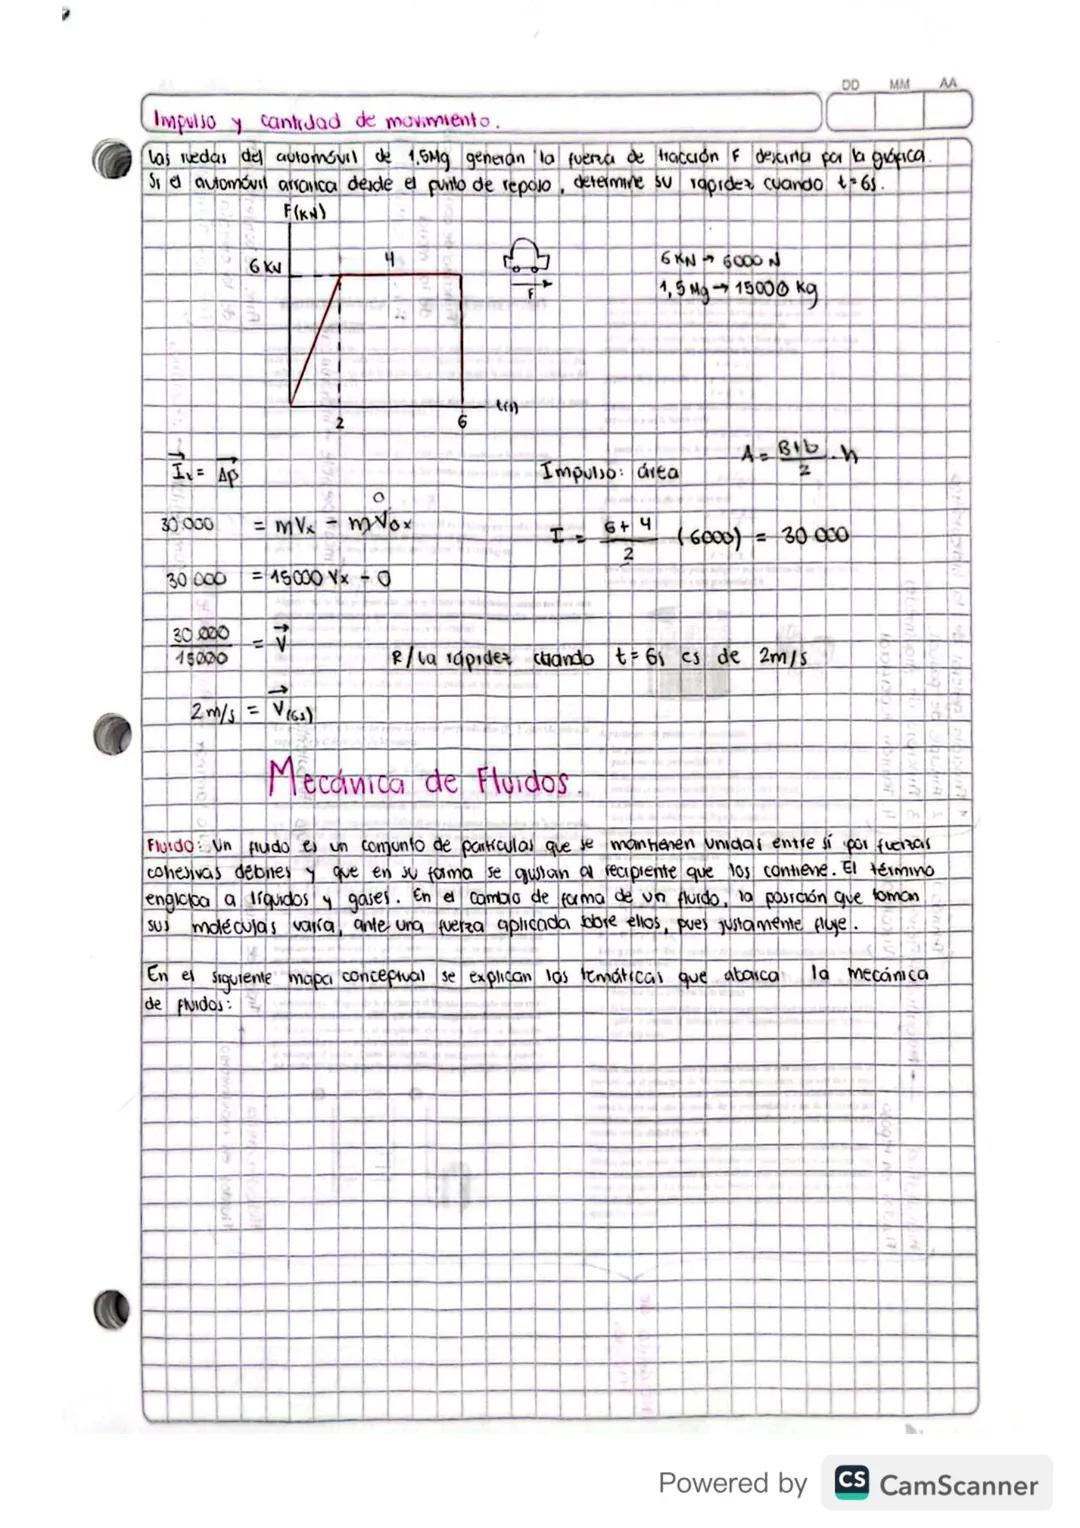 DD MM AA
Impulso y cantidad de movimiento.
Las ruedas del automóvil de 1,5Mg generan la fuerza de tracción F descrita por la gráfica.
Si el automóvil arranca desde el punto de reposo, determine su rapidez cuando t=6s.
F(KN)
6 KN
4
F
2
6
6 KN → 6000 N
1,5 Mg → 15000 Kg
Ix = Δp
Impulso: área
A = B+b / 2 . h
0
30 000 = mVx - mVox
I = 6+4 / 2 (6000) = 30 000
30 000 = 15000 Vx - 0
30 000 / 15000 = V
R/ La rapidez cuando t=6s es de 2m/s
2 m/s = V(6s)
Mecánica de Fluidos.
Fluido: Un fluido es un conjunto de partículas que se mantienen unidas entre sí por fuerzas
cohesivas débiles y que en su forma se ajustan al recipiente que los contiene. El término
engloba a líquidos y gases. En el cambio de forma de un fluido, la posición que toman
sus moléculas varía, ante una fuerza aplicada sobre ellos, pues justamente fluye.
En el siguiente mapa conceptual se explican las temáticas que abarca la mecánica
de fluidos:
Powered by CS CamScanner